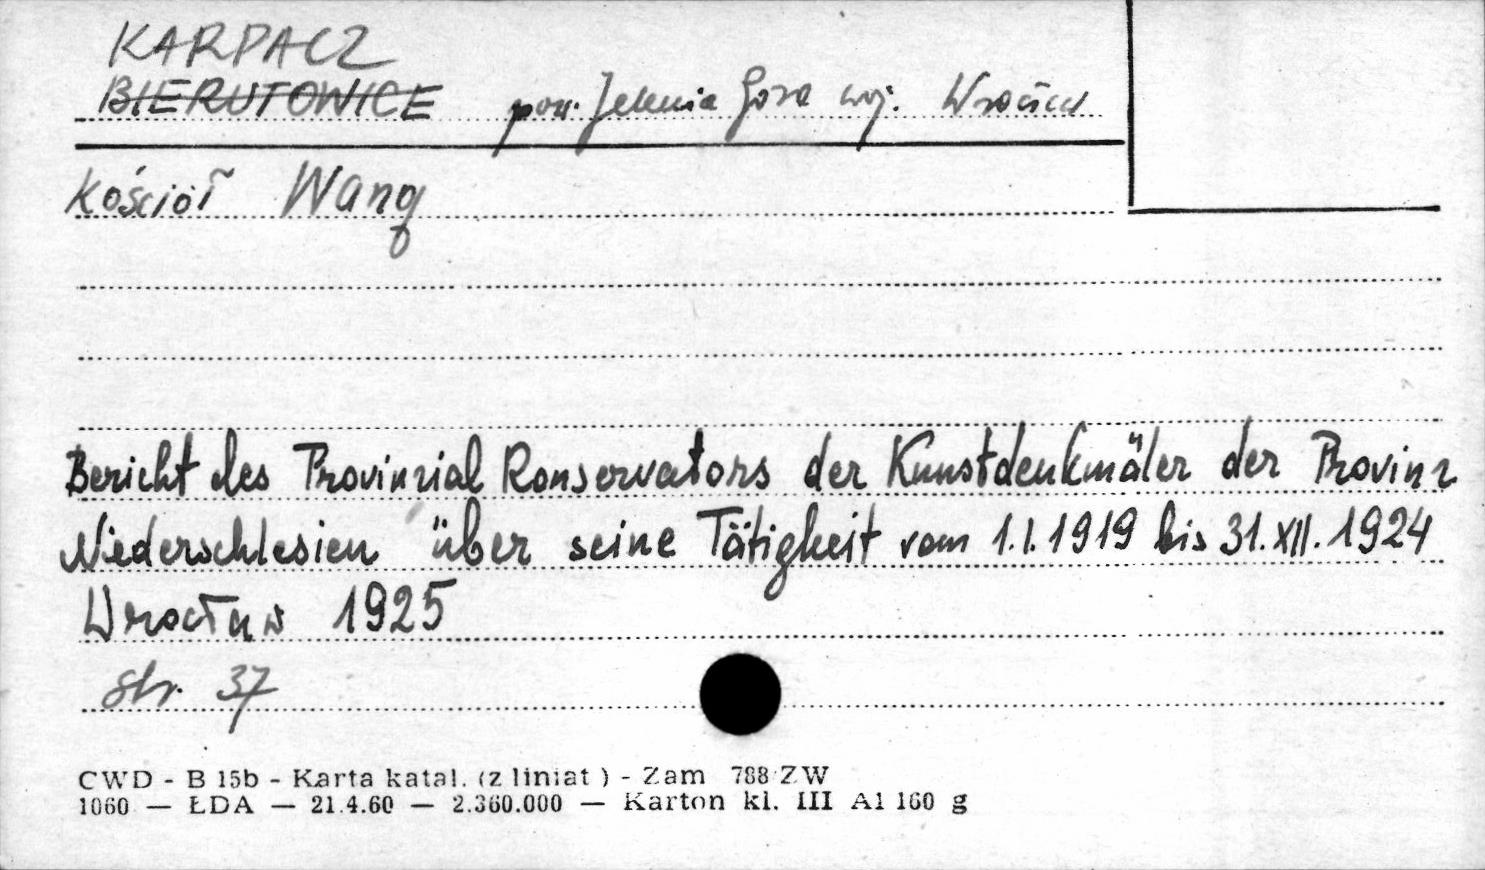 KARPACZ
BIERUTOWICE pow. Jelenia Góra woj. Wrocław
Kościół Wang
Bericht des Provinzial Konservators der Kunstdenkmäler der Provinz
Niederschlesien über seine Tätigkeit vom 1.I.1919 bis 31.XII.1924
Wrocław 1925
str. 37
CWD - B 15b - Karta katal. (z liniat ) - Zam 788 ZW
1060 — ŁDA — 21.4.60 — 2.360.000 — Karton kl. III A1 160 g